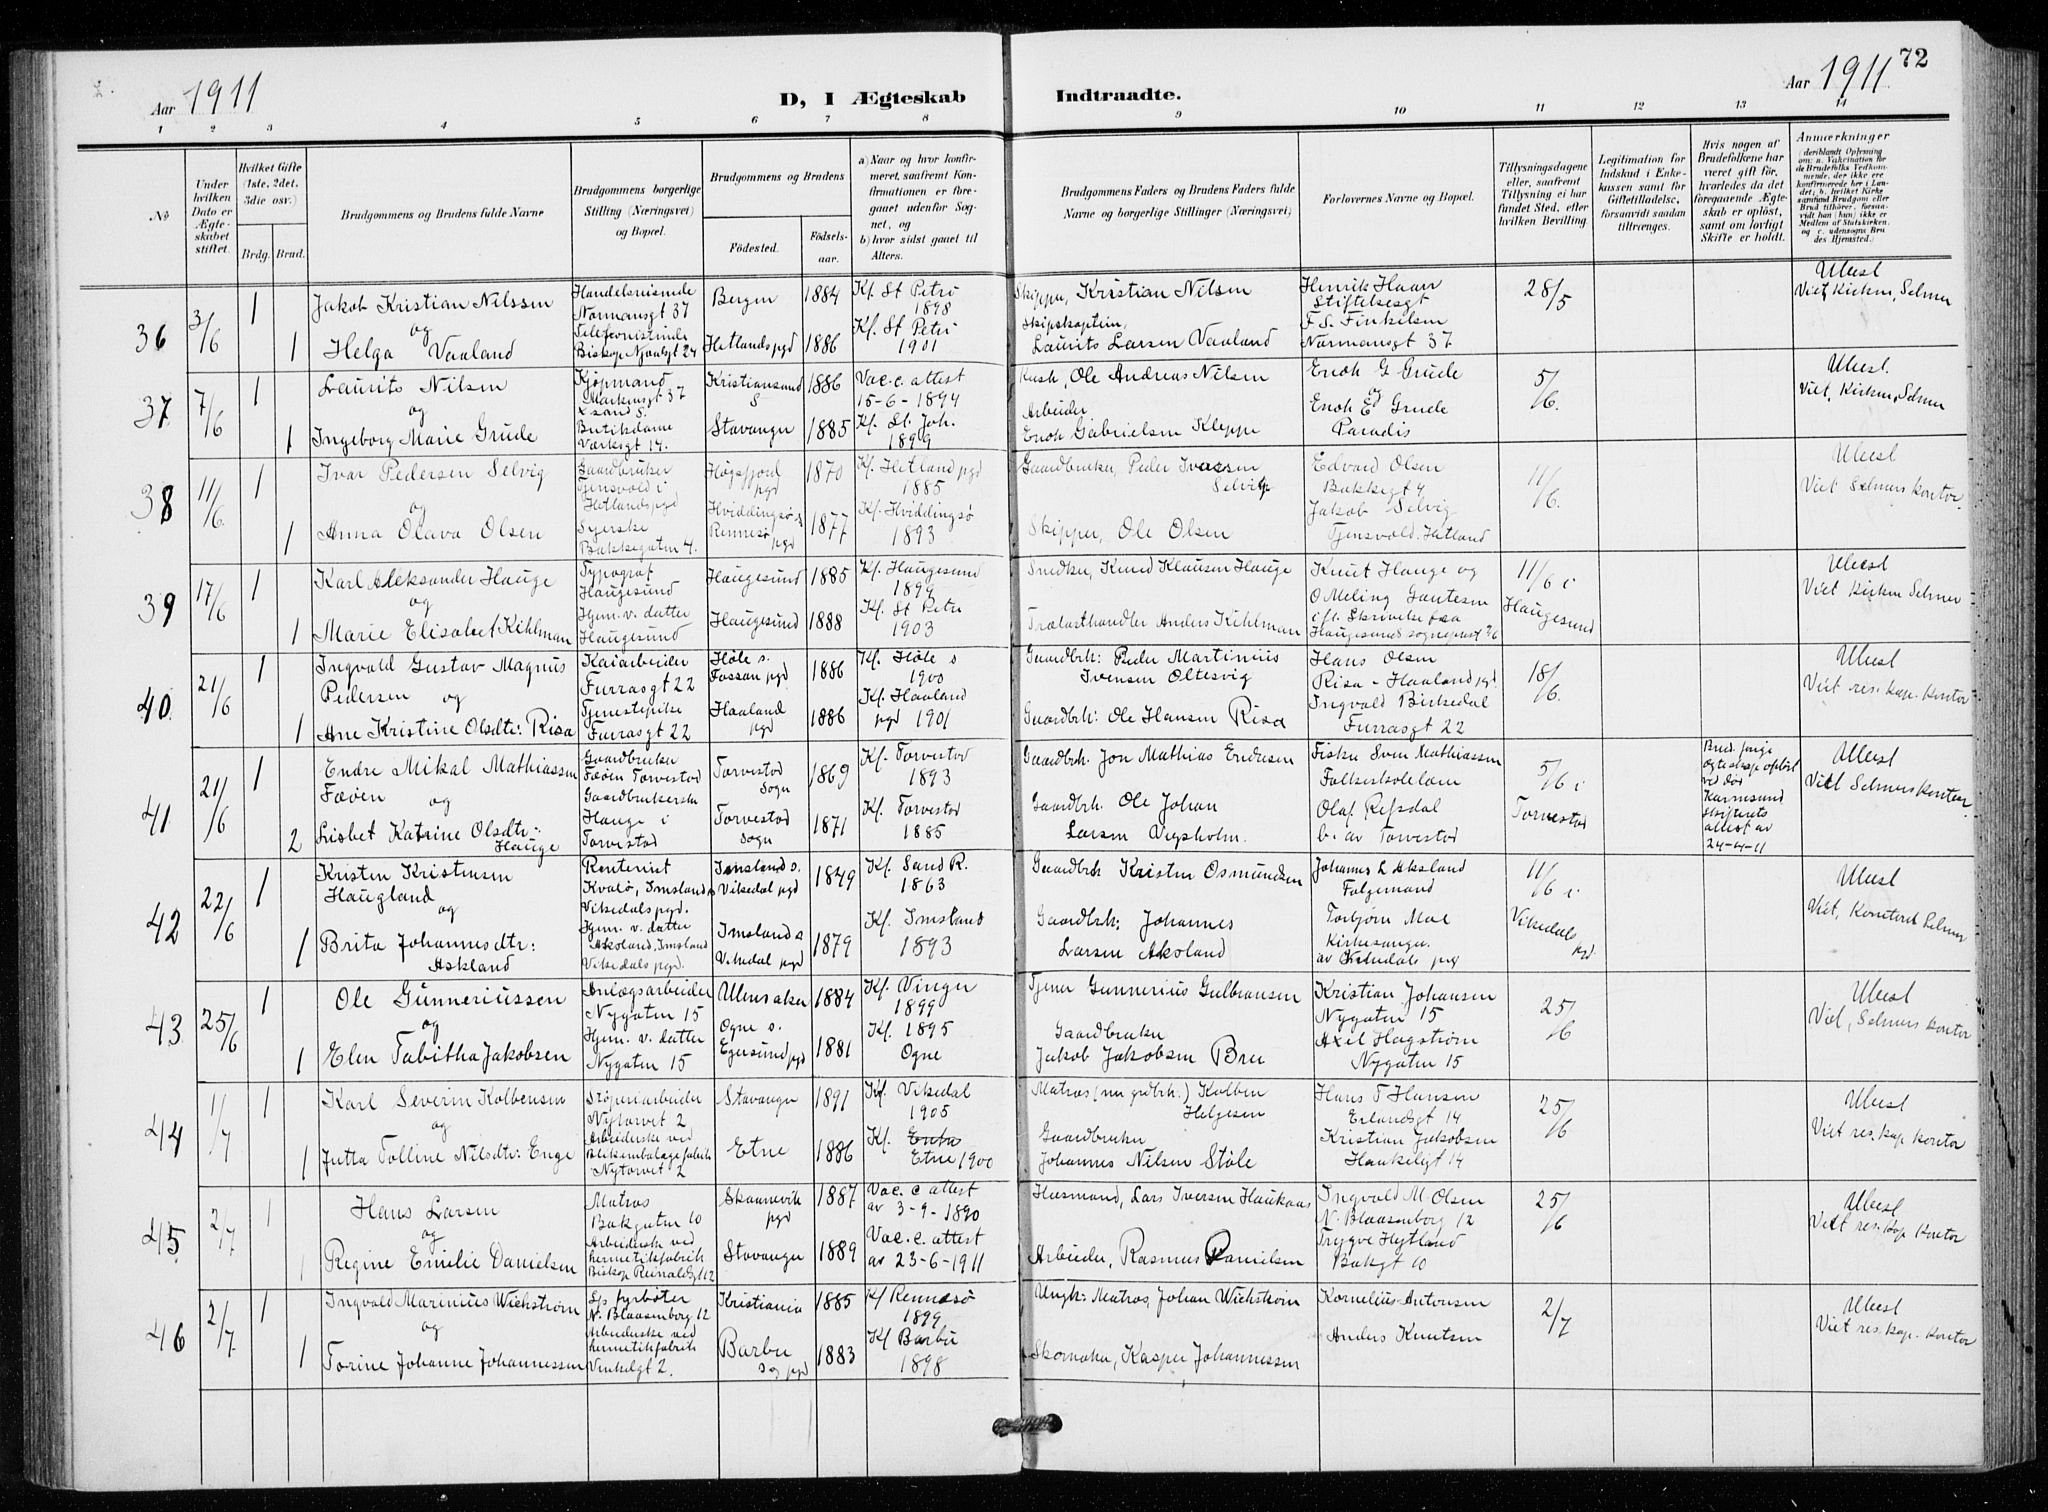 72
Aar 1911
D, I Ægteskab Indtraadte.
Aar 1911.
1 2 3 4 5 6 7 8 9 10 11 12 13 14
No
Under hvilken Dato er Ægteskabet stiftet.
Hvilket Gifte (1ste, 2det, 3die osv.)
Brdg. Brud.
Brudgommens og Brudens fulde Navne
Brudgommens borgerlige Stilling (Næringsvei) og Bopæl.
Brudgommens og Brudens
Födested.
Födselsaar.
a) Naar og hvor konfirmeret, saafremt Konfirmationen er foregaaet udenfor Sognet, og
b) hvor sidst gaaet til Alters.
Brudgommens Faders og Brudens Faders fulde Navne og borgerlige Stillinger (Næringsvei)
Forlovernes Navne og Bopæl.
Tillysningsdagene eller, saafremt Tillysning ei har fundet Sted, efter hvilken Bevilling.
Legitimation for Indskud i Enkekassen samt for Giftetilladelse, forsaavidt saadan tiltrænges.
Hvis nogen af Brudefolkene har været gift för, hvorledes da det foregaaende Ægteskab er oplöst, samt om lovligt Skifte er holdt.
Anmærkninger
(deriblandt Oplysning om: a. Vakcination for de Brudefolks Vedkommende, der ikke ere konfirmerede her i Landet; b. hvilket Kirkesamfund Brudgom eller Brud tilhörer, forsaavidt han (hun) ikke er Medlem af Statskirken, og c. udensogns Brudes Hjemsted.)
36 3/6 1
Jakob Kristian Nilssen
og
1 Helga Vaaland
Handelsreisende
Normansgt 37
Telefonistinde
Biskop Njaalsgt 24
Bergen 1884
Hetlands pgd 1886
Kf. St Petri
1898
Kf. St Petri
1901
Skipper, Kristian Nilsen
Skipskaptein,
Laurits Larsen Vaaland
Henrik Haan
Stiftelsesgt
F. S. Finkelsen
Normansgt 37
28/5
Viet, Kirken, Selmer
37 7/6 1
Laurits Nilsen
og
1 Ingeborg Marie Grude
Kjøpmand
Markensgt 37
Xsand S.
Butikdame
Verksgt 14.
Kristiansand S 1886
Stavanger 1885
Vac. c. attest
15-6-1894
Kf. St. Joh.
1899
Kusk, Ole Andreas Nilsen
Arbeider
Enok Gabrielsen Kleppe
Enok G Grude
og
Enok E Grude
Paradis
5/6.
Viet, Kirken, Selmer
38 11/6. 1
Ivar Pedersen Selvig
og
1 Anna Olava Olsen
Gaardbruker
Tjensvold i
Hetlands pgd
Syerske
Bakkegaten 4.
Høgsfjord pgd 1870
Hviddingsø s
Rennesø pgd 1877
Kf. Hetland pgd
1885
Kf. Hviddingsø
1893
Gaardbruker, Peder Iversen
Selvig
Skipper, Ole Olsen
Edvard Olsen
Bakkegt 4
Jakob Selvig
Tjensvold. Hetland
11/6.
Viet Selmers kontor.
39 17/6 1
Karl Aleksander Hauge
og
1 Marie Elisabet Kihlman
Typograf
Haugesund
Hjem. v. datter
Haugesund
Haugesund 1885
Haugesund 1888
Kf. Haugesund
1899
Kf. St Petri
1903
Snedker, Knud Klausen Hauge
Trælasthandler Anders Kihlman
Knut Hauge og
O Meling Gautesen
ift. Skrivelse fra
Haugesund sognepræst
11/6 i
Haugesund
Viet Kirken Selmer
40. 21/6 1
Ingvald Gustav Magnus
Pedersen og
1 Ane Kristine Olsdtr: Risa
Kaiarbeider
Furrasgt 22
Tjenestepike
Furrasgt 22
Høle s.
Fossan pgd 1886
Haaland pgd 1886
Kf. Høle s
1900
Kf. Haaland
pgd 1901
Gaardbrk: Peder Martinius
Iversen Oltesvig
Gaardbrk: Ole Hansen Risa
Hans Olsen
Risa - Haaland pgd
Ingvald Birkedal
Furrasgt 22
18/6.
Viet res. kap. kontor
41 21/6 1
Endre Mikal Mathiassen
Fæøen og
2 Lisbet Katrine Olsdtr:
Hauge
Gaardbruker
Fæøen Torvestad
Gaardbrukerske
Hauge i
Torvestad
Torvestad Sogn 1869
Torvestad sogn 1871
Kf. Torvestad
1893
Kf. Torvestad
1885
Gaardbrk. Jon Mathias Endresen
Gaardbrk. Ole Johan
Larsen Vigsholm.
Fisker Sven Mathiassen
Folkeskolelær.
Olaf Refsdal
b. av Torvestad
5/6 i
Torvestad
Brud. forrige
egteskap opløst
ved død
Karmsund
skifterets
attest av
24-4-11
Viet Selmers kontor.
42 22/6 1
Kristen Kristensen
Haugland
og
1 Brita Johannesdtr:
Askland
Rentenist
Kvalø, Imsland s
Vikedals pgd.
Hjem. v. datter
Askland, Imsland
Vikedals pgd.
Imsland s.
Vikedal pgd 1849
Imsland s
Vikedal pgd 1879
Kf. Sand R.
1863
Kf. Imsland
1893
Gaardbrk Kristen Osmundsen
Gaardbrk: Johannes
Larsen Aksland
Johannes L Aksland
Torbjørn Moe
Kirkesanger.
av Vikedals pgd
11/6 i
Vikedals pgd.
Viet, Kontoret Selmer
43 25/6 1
Ole Gunneriussen
og
1 Elen Tabitha Jakobsen
Anlægsarbeider
Nygaten 15
Hjem. v. datter
Nygaten 15
Ullensaker 1884
Ogne s.
Egersund pgd 1881
Kf. Vinger
1899
Kf. 1895
Ogne
Tjener Gunnerius Gulbransen
Gaardbruker
Jakob Jakobsen Bru
Kristian Johansen
Nygaten 15
Axel Hagstrøm
Nygaten 15
25/6
Viet, Selmers kontor
44 1/7 1
Karl Severin Kolbensen
og
1 Jutta Tolline Nilsdtr: Enge
Støperiarbeider
Nytorvet 2
Arbeiderske ved
Blikemballagefabrik
Nytorvet 2
Stavanger 1891
Etne 1886
Kf. Vikedal
1905
Kf.
Etne 1900
Matros (nu grdbrk.) Kolben
Helgesen
Gaardbruker
Johannes Nilsen Støle
Hans T Hansen
Erlandsgt 14
Kristian Jakobsen
Haukeligt 14
25/6
Viet res. kap kontor
45 2/7 1
Hans Larsen
og
1 Regine Emelie Danielsen
Matros
Bakgaten 10
Arbeiderske ved
hermetikfabrik
Biskop Reinaldsgt 12
Skaanevik pgd 1887
Stavanger 1889
Vac. c attest
av 3-9-1890
Vac. c. attest
av 23-6-1911
Husmand, Lars Iversen Haukaas
Arbeider, Rasmus Danielsen
Ingvald M Olsen
N. Blaasenborg 12
Trygve Høtland
Bakgt 10
25/6
Viet res. kap. kontor
46 2/7. 1
Ingvald Marinius Wichstrøm
og
1 Torine Johanne Johannessen
Sp. fyrbøter
N. Blaasenborg 12
Arbeiderske ved
hermetikfabrik
Vinkelgt 2.
Kristiania 1885
Barbu
Sog pgd 1883
Kf Rennesø
1899
Kf Barbu
1898
Ungk: Matros, Johan Wichstrøm
Skomaker, Kasper Johannessen
Kornelius Antonsen
Anders Knutsen
2/7
Viet res. kap. kontor